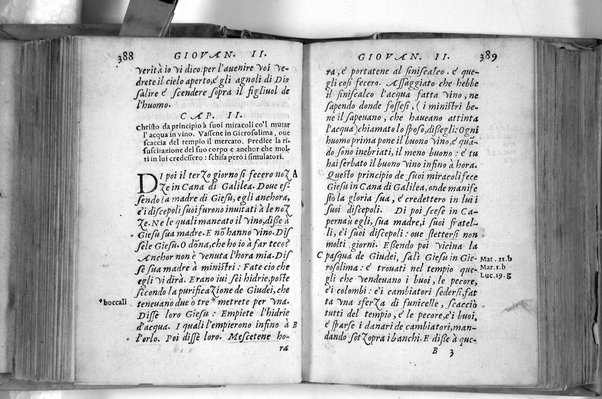 388
GIOVAN. II.
verità io vi dico: per l'auenire voi ve-
drete il cielo aperto, e gli agnoli di Dio
salire e scendere sopra il figliuol de
l'huomo.
CAP. II.
Christo da principio à suoi miracoli co'l mutar
l'acqua in vino. Vassene in Gierosolima, oue
scaccia del tempio il mercato. Predice la ri-
suscitazione del suo corpo e anchor che mol-
ti in lui credessero: schifa però i simulatori.
Di poi il terzo giorno si fecero noz A
ze in Cana di Galilea. Doue es-
sendo la madre di Giesu, egli anchora,
e i discepoli suoi furono inuitati à le noz
ze. Ne le quali mancato il vino, disse à
Giesu sua madre. E nō hanno vino. Dis
sele Giesu. O dōna, che ho io à far teco?
Anchor non è venuta l'hora mia. Dis
se sua madre à ministri: Fate cio che
egli vi dirà. Erano iui sei hidrie, poste
secondo la purificazione de Giudei, che
*boccali teneuano due o tre * metrete per vna.
Disse loro Giesu: Empiete l'hidrie
d'acqua. I quali l'empierono infino à B
l'orlo. Poi disse loro. Mescetene ho-
ra
GIOVAN. II.
389
ra, e portatene al siniscalco. e que-
gli così fecero. Assaggiato che hebbe
il siniscalco l'acqua fatta vino, ne
sapendo donde fossesi, (i ministri be-
ne il sapeuano, che haueano attinta
l'acqua) chiamato lo sposo, dissegli: Ogni
huomo prima pone il buono vino, e quā-
do sono inebriati, il meno buono: e tu
hai serbato il buono vino infino à hora.
Questo principio de suoi miracoli fece
Giesu in Cana di Galilea, onde manife
stò la gloria sua, e credettero in lui i
suoi discepoli. Di poi scese in Ca-
pernaū egli, sua madre, i suoi frateli,
e i suoi discepoli: oue stettersi non
molti giorni. Essendo poi vicina la
C pasqua de Giudei, salì Giesu in Gie- Mat. 21. b
rosolima: e trouati nel tempio que- Mar. 1. b
gli che vendeuano i buoi, le pecore, Luc. 19. g
e i colombi: e i cambiatori sedersi, fat
ta vna sferza di funicelle, scacciò
tutti del tempio, e le pecore, e i buoi,
e sparse i danari de cambiatori, man-
dando sotzopra i banchi. E disse à que-
B 3